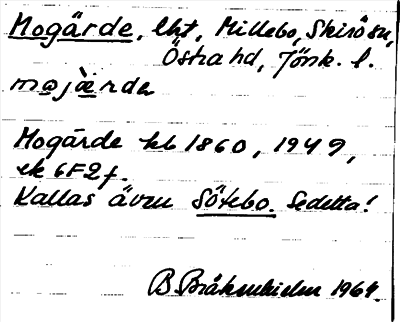 Mogärde, lht, Millebo, Skirö sn,
Östra hd, Jönk. l.
mo̲jæ̲̀rda
Mogärde kb 1860, 1949,
ek 6F2f.
Kallas även Sötebo. Se detta!
B. Bråkenhielm 1964.